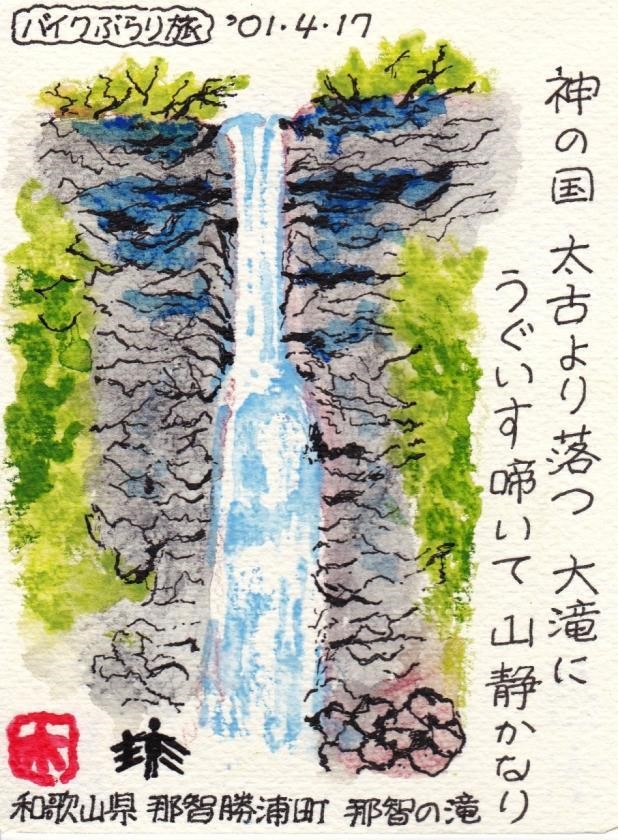 バイクぶらり旅 '01.4.17
神の国 太古より落つ 大滝に
うぐいす啼いて 山静かなり
和歌山県 那智勝浦町 那智の滝